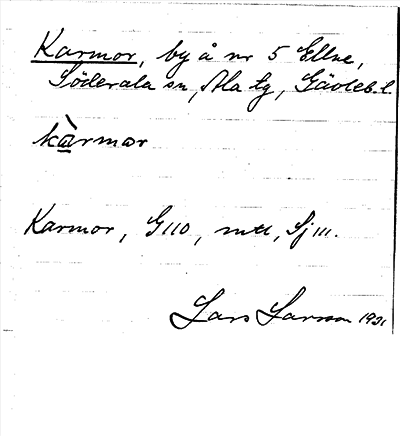 Karmor, by å nr 5 Ellne,
Söderala sn, Ala tg, Gävleb. l
kàrmar
Karmor, G110, mtl, Sj III.
Lars Larsson 1931